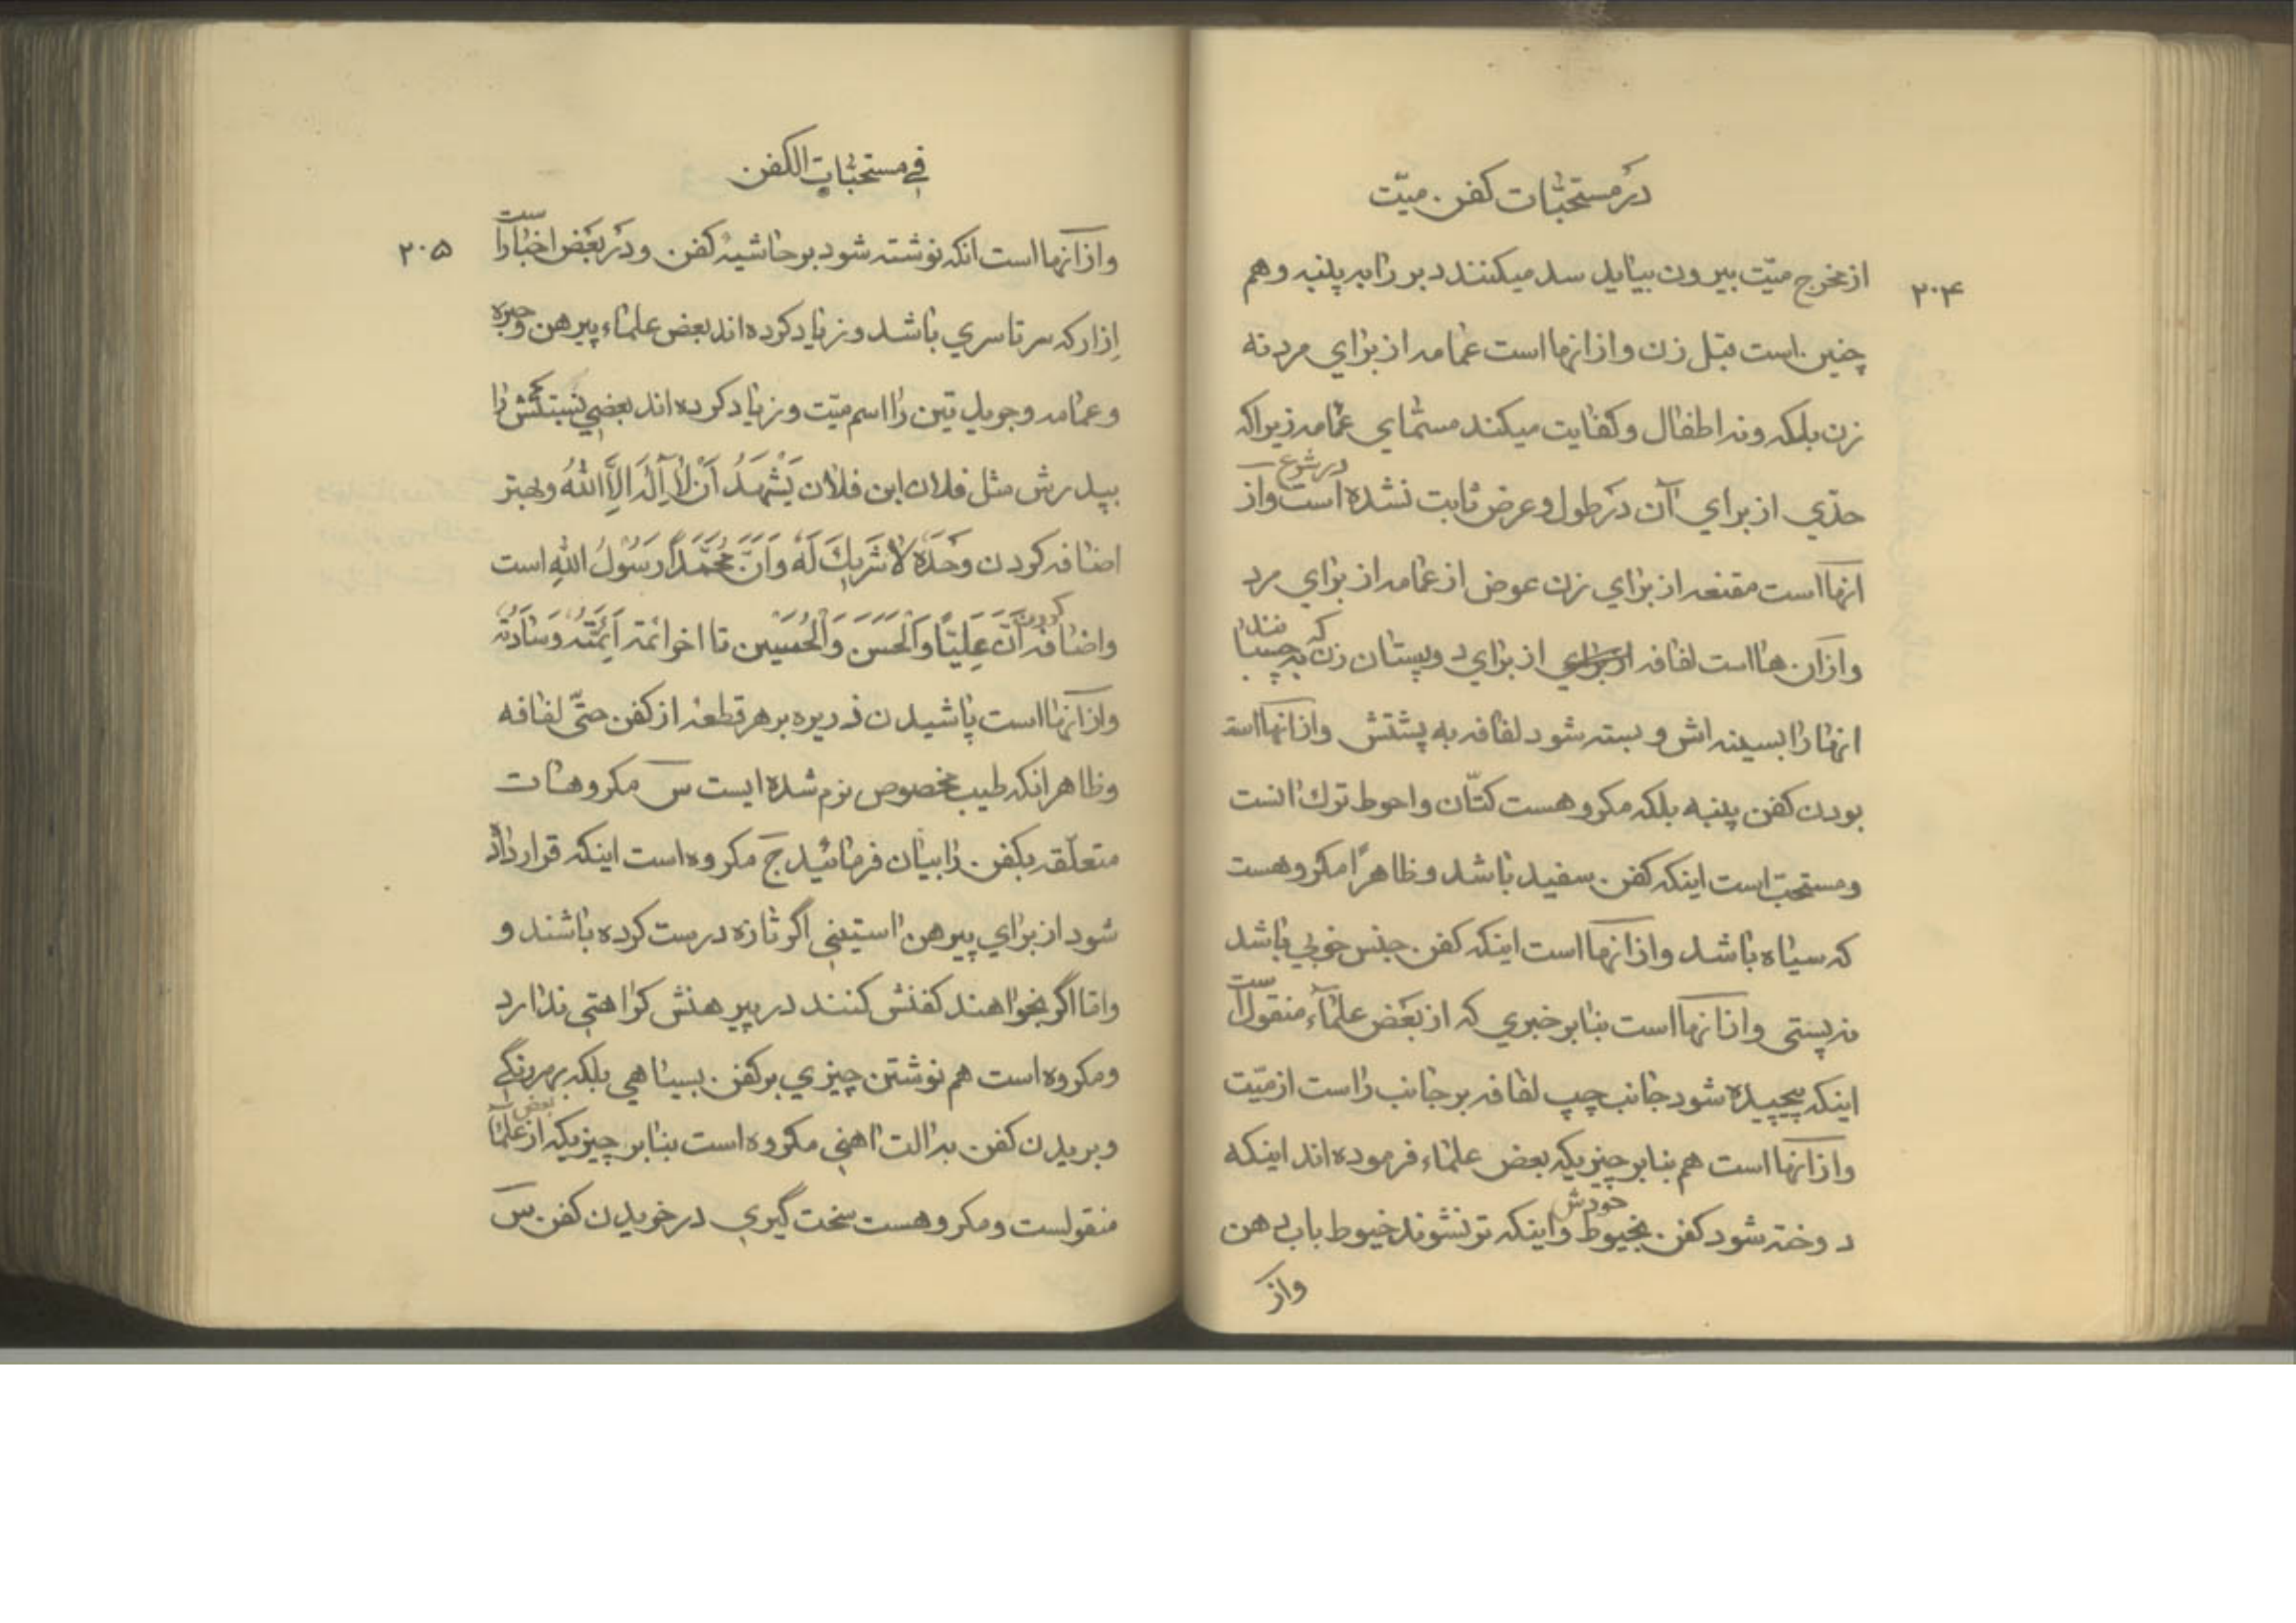 در مستحبّات كفن ميّت
۲۰۴
از مخرج ميّت بيرون بيايد سد ميكنند دبر را به پنبه و هم
چنين است قبل زن و از انها است عمامه از براي مرد نه
زن بلكه و نه اطفال و كفايت ميكند مسمّاي عمّامه زيراكه
حدّي از براي آن در طول و عرض ثابت نشده است در شرع و از
انها است مقنعه از براي زن عوض از عمامه از براي مرد
و از آن ها است لفافه از براي دو پستان زن كه بچسبانند
انها را بسينه اش و بسته شود لفافه به پشتش و از انها است
بودن كفن پنبه بلكه مكروهست كتّان و احوط ترك انست
و مستحبّ است اينكه كفن سفيد باشد و ظاهرًا مكروهست
كه سياه باشد و از انها است اينكه كفن جنس خوبي باشد
نه پستي و از انها است بنابر خبري كه از بعض علمآء منقول است
اينكه پيچيده شود جانب چپ لفافه بر جانب راست از ميّت
و از انها است هم بنابر چيزيكه بعض علماء فرموده اند اينكه
دوخته شود كفن بخيوط خودش و اينكه تر نشوند خيوط باب دهن
و از
في مستحبّات الكفن
۲۰۵
و از انها است انكه نوشته شود بر حاشيهٔ كفن و در بعض اخبار است
اِزار كه سرتاسري باشد و زياد كرده اند بعض علماء پيرهن و حبره
و عمامه و جريدتين را اسم ميّت و زياد كرده اند بعضي نسبتش را
بپدرش مثل فلان ابن فلان يَشْهَدُ اَنْ لا اِلهَ اِلاَّ اللهُ و بهتر
اضافه كردن وَحْدَهُ لا شَريكَ لَهُ وَ اَنَّ مُحَمَّدًا رَسُولُ اللهِ است
و اضافه كردن اَنَّ عَلِيًّا وَ الْحَسَنَ وَ الْحُسَيْنَ تا اخر ائمّه اَئِمَّتُهُ وَ سادَتُهُ
و از انها است پاشيدن ذريره بر هر قطعهٔ از كفن حتّي لفافه
و ظاهر انكه طيب مخصوص نرم شده ايست س مكروهات
متعلّقه بكفن را بيان فرمائيد ج مكروه است اينكه قرار داده
شود از براي پيرهن استيني اگر تازه درست كرده باشند و
و امّا اگر بخواهند كفنش كنند در پيرهنش كراهتي ندارد
و مكروه است هم نوشتن چيزي بر كفن بسياهي بلكه بهر رنگي
و بريدن كفن به الت اهني مكروه است بنابر چيزيكه از بعض علمآ
منقولست و مكروهست سخت گيري در خريدن كفن س